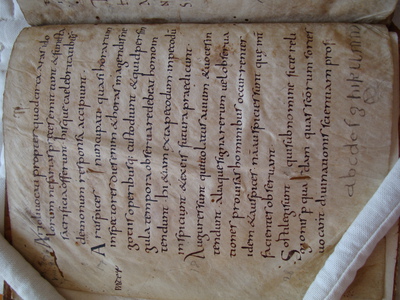 Arioli vocati propter quod circa aras ido
lorum nefarias preces emittunt & funesta
sacrificia offerunt hisque caelebritatibus
demonum responsa accipiunt
Aruspices nuncupati quasi horarum
inspectores dies enim & horas in agendis ne
gotiis operibusq; custodiunt & quid per sin
gula tempora observare debeat homo in
tendunt hi &iam exta pecodum
inspiciunt & ex eis futura praedicunt
Augures sunt qui volatus avium & voces in
tendunt aliaque signa rerum vel observa
tiones provisas hominibus occurrentes
idem & auspices nã auspicies sunt que
facientes observant
Sortilegi sunt qui sub nomine ficte reli
gionis p qua dam quas scõrum sortes
vocant divinationis scientiam prof
abcdefghiklmn